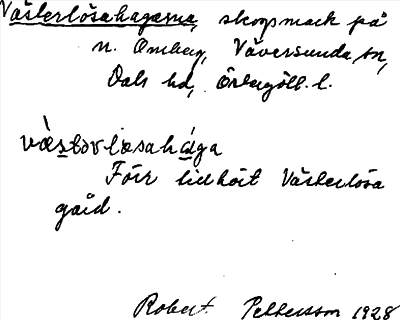 Västerlösahagarna, skogsmark på
n. Omberg, Väversunda sn,
Dals hd, Östergötl. l.
væ̀stərløsahága
Förr tillhört Västerlösa
gård.
Robert Pettersson 1928